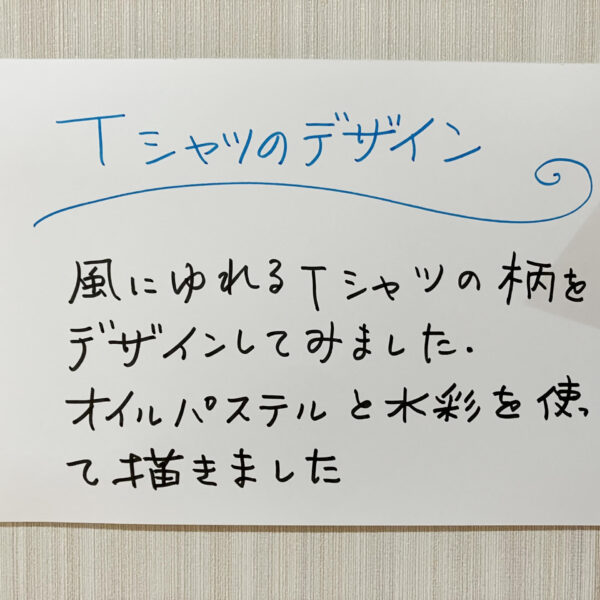 Tシャツのデザイン
風にゆれるTシャツの柄を
デザインしてみました.
オイルパステルと水彩を使っ
て描きました